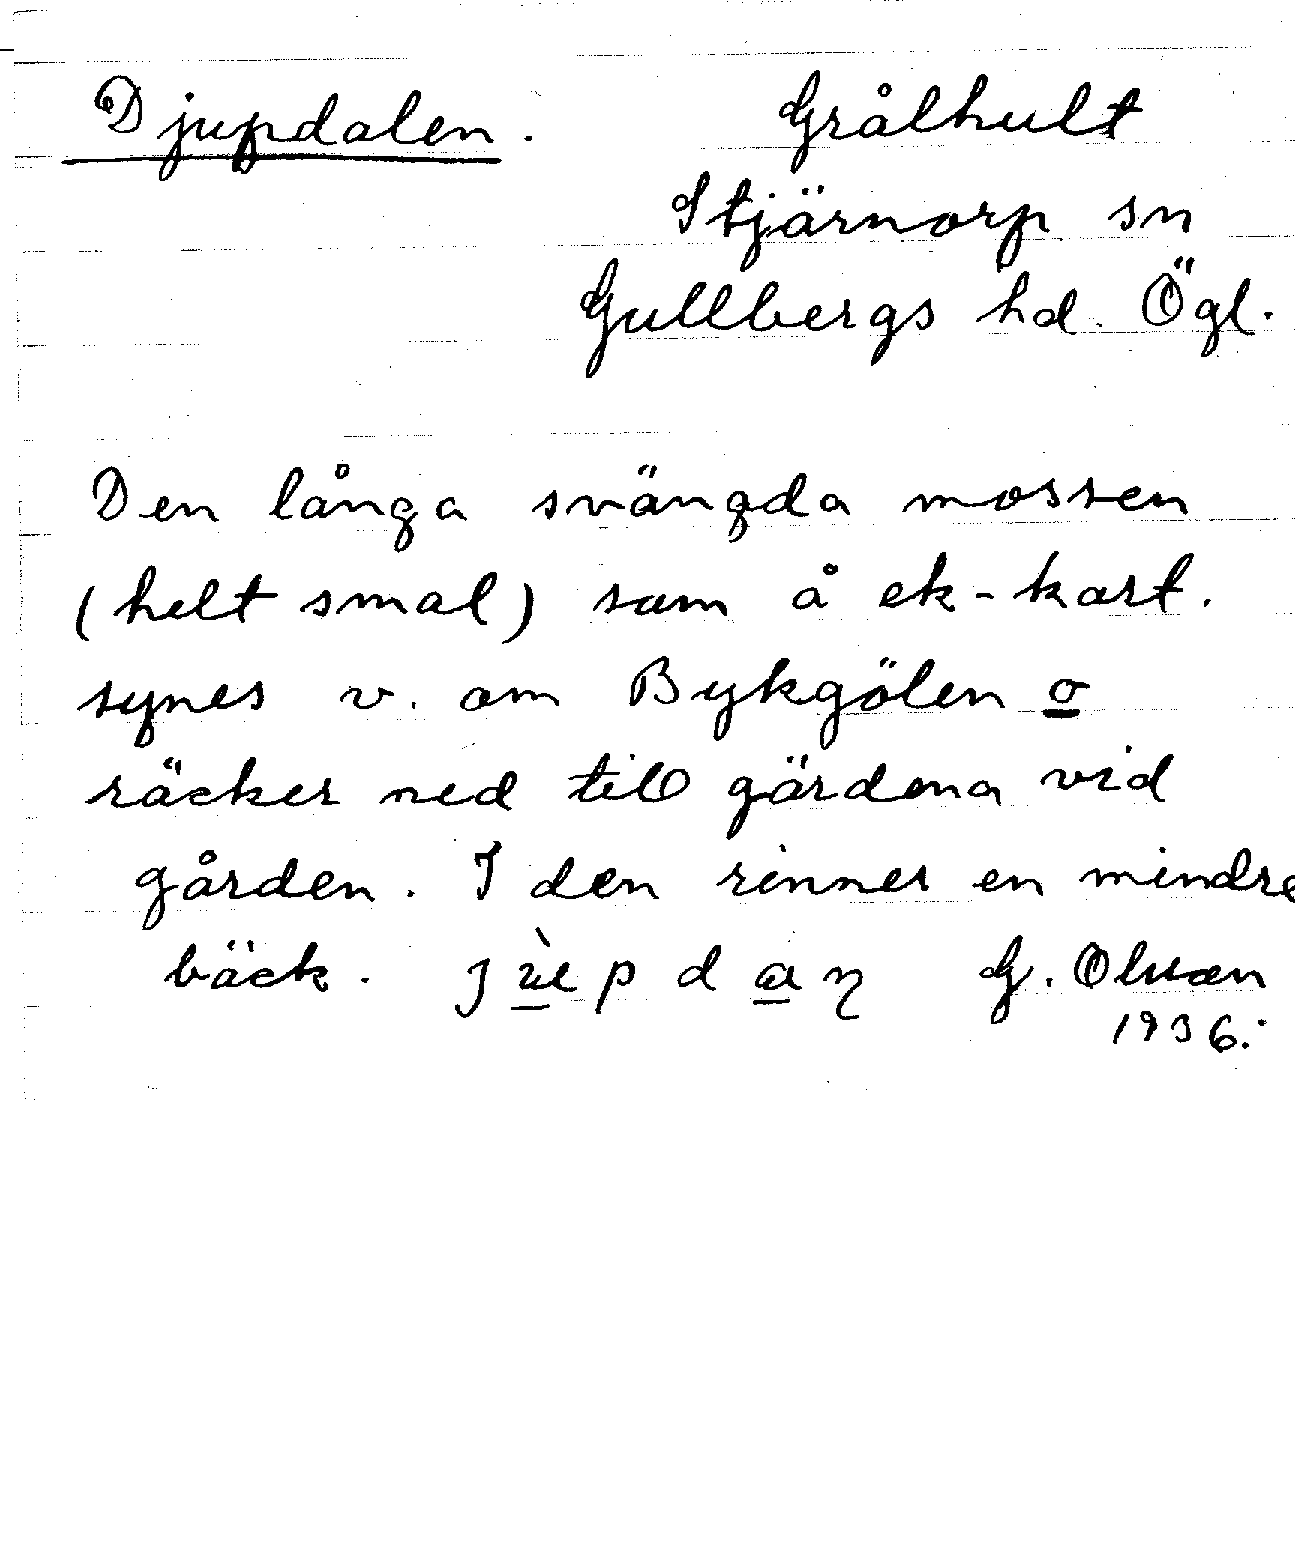 Djupdalen. Grålhult
Stjärnorp sn
Gullbergs hd. Ögl.
Den långa svängda mossen
(helt smal) som å ek-kart.
synes v. om Bykgölen o
räcker ned till gärdena vid
gården. I den rinner en mindre
bäck. G. Olsson
1936.